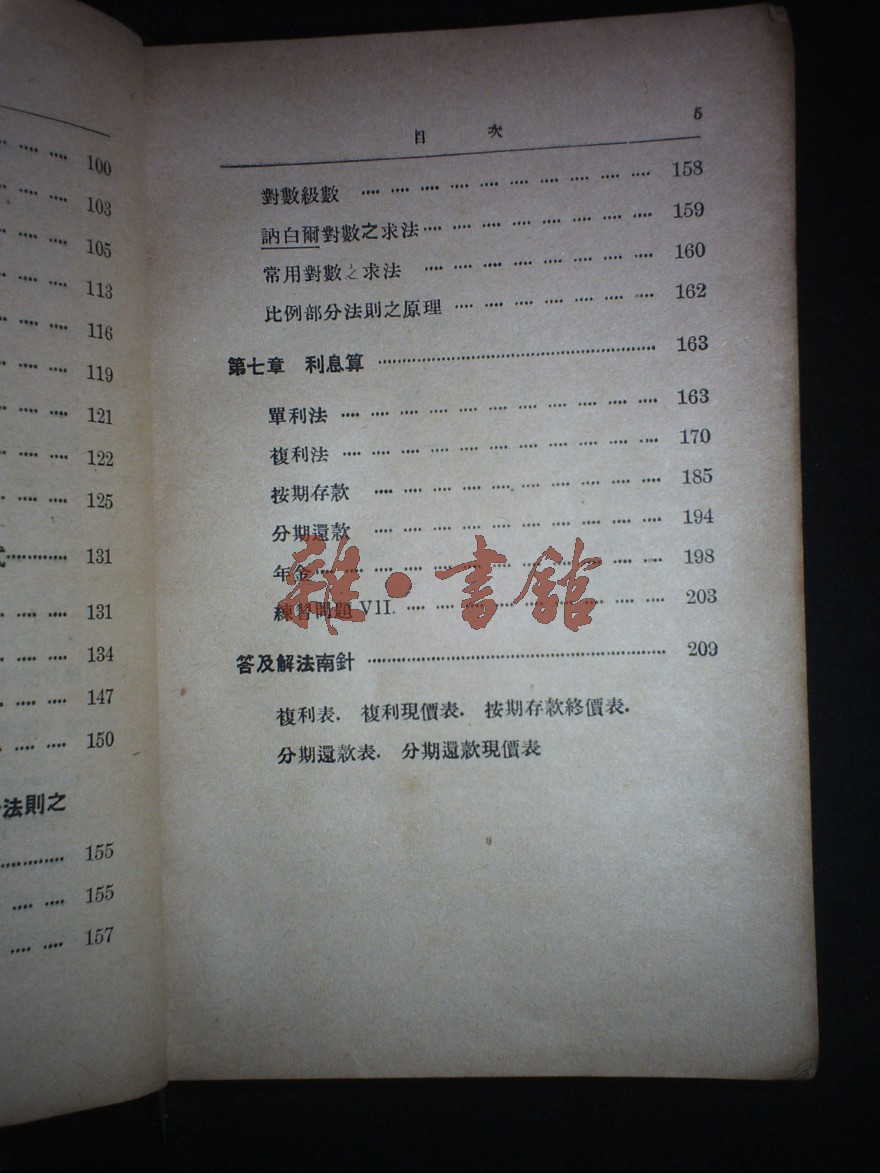 100
103
105
113
116
119
121
122
125
131
131
134
147
150
法則之
155
155
157
目 次 5
對數級數 ···· 158
訥白爾對數之求法 ···· 159
常用對數之求法 ···· 160
比例部分法則之原理 ···· 162
第七章 利息算 ···· 163
單利法 ···· 163
複利法 ···· 170
按期存款 ···· 185
分期還款 ···· 194
年金 ···· 198
練習問題 VII. ···· 203
答及解法南針 ···· 209
複利表. 複利現價表. 按期存款終價表.
分期還款表. 分期還款現價表
雜·書館